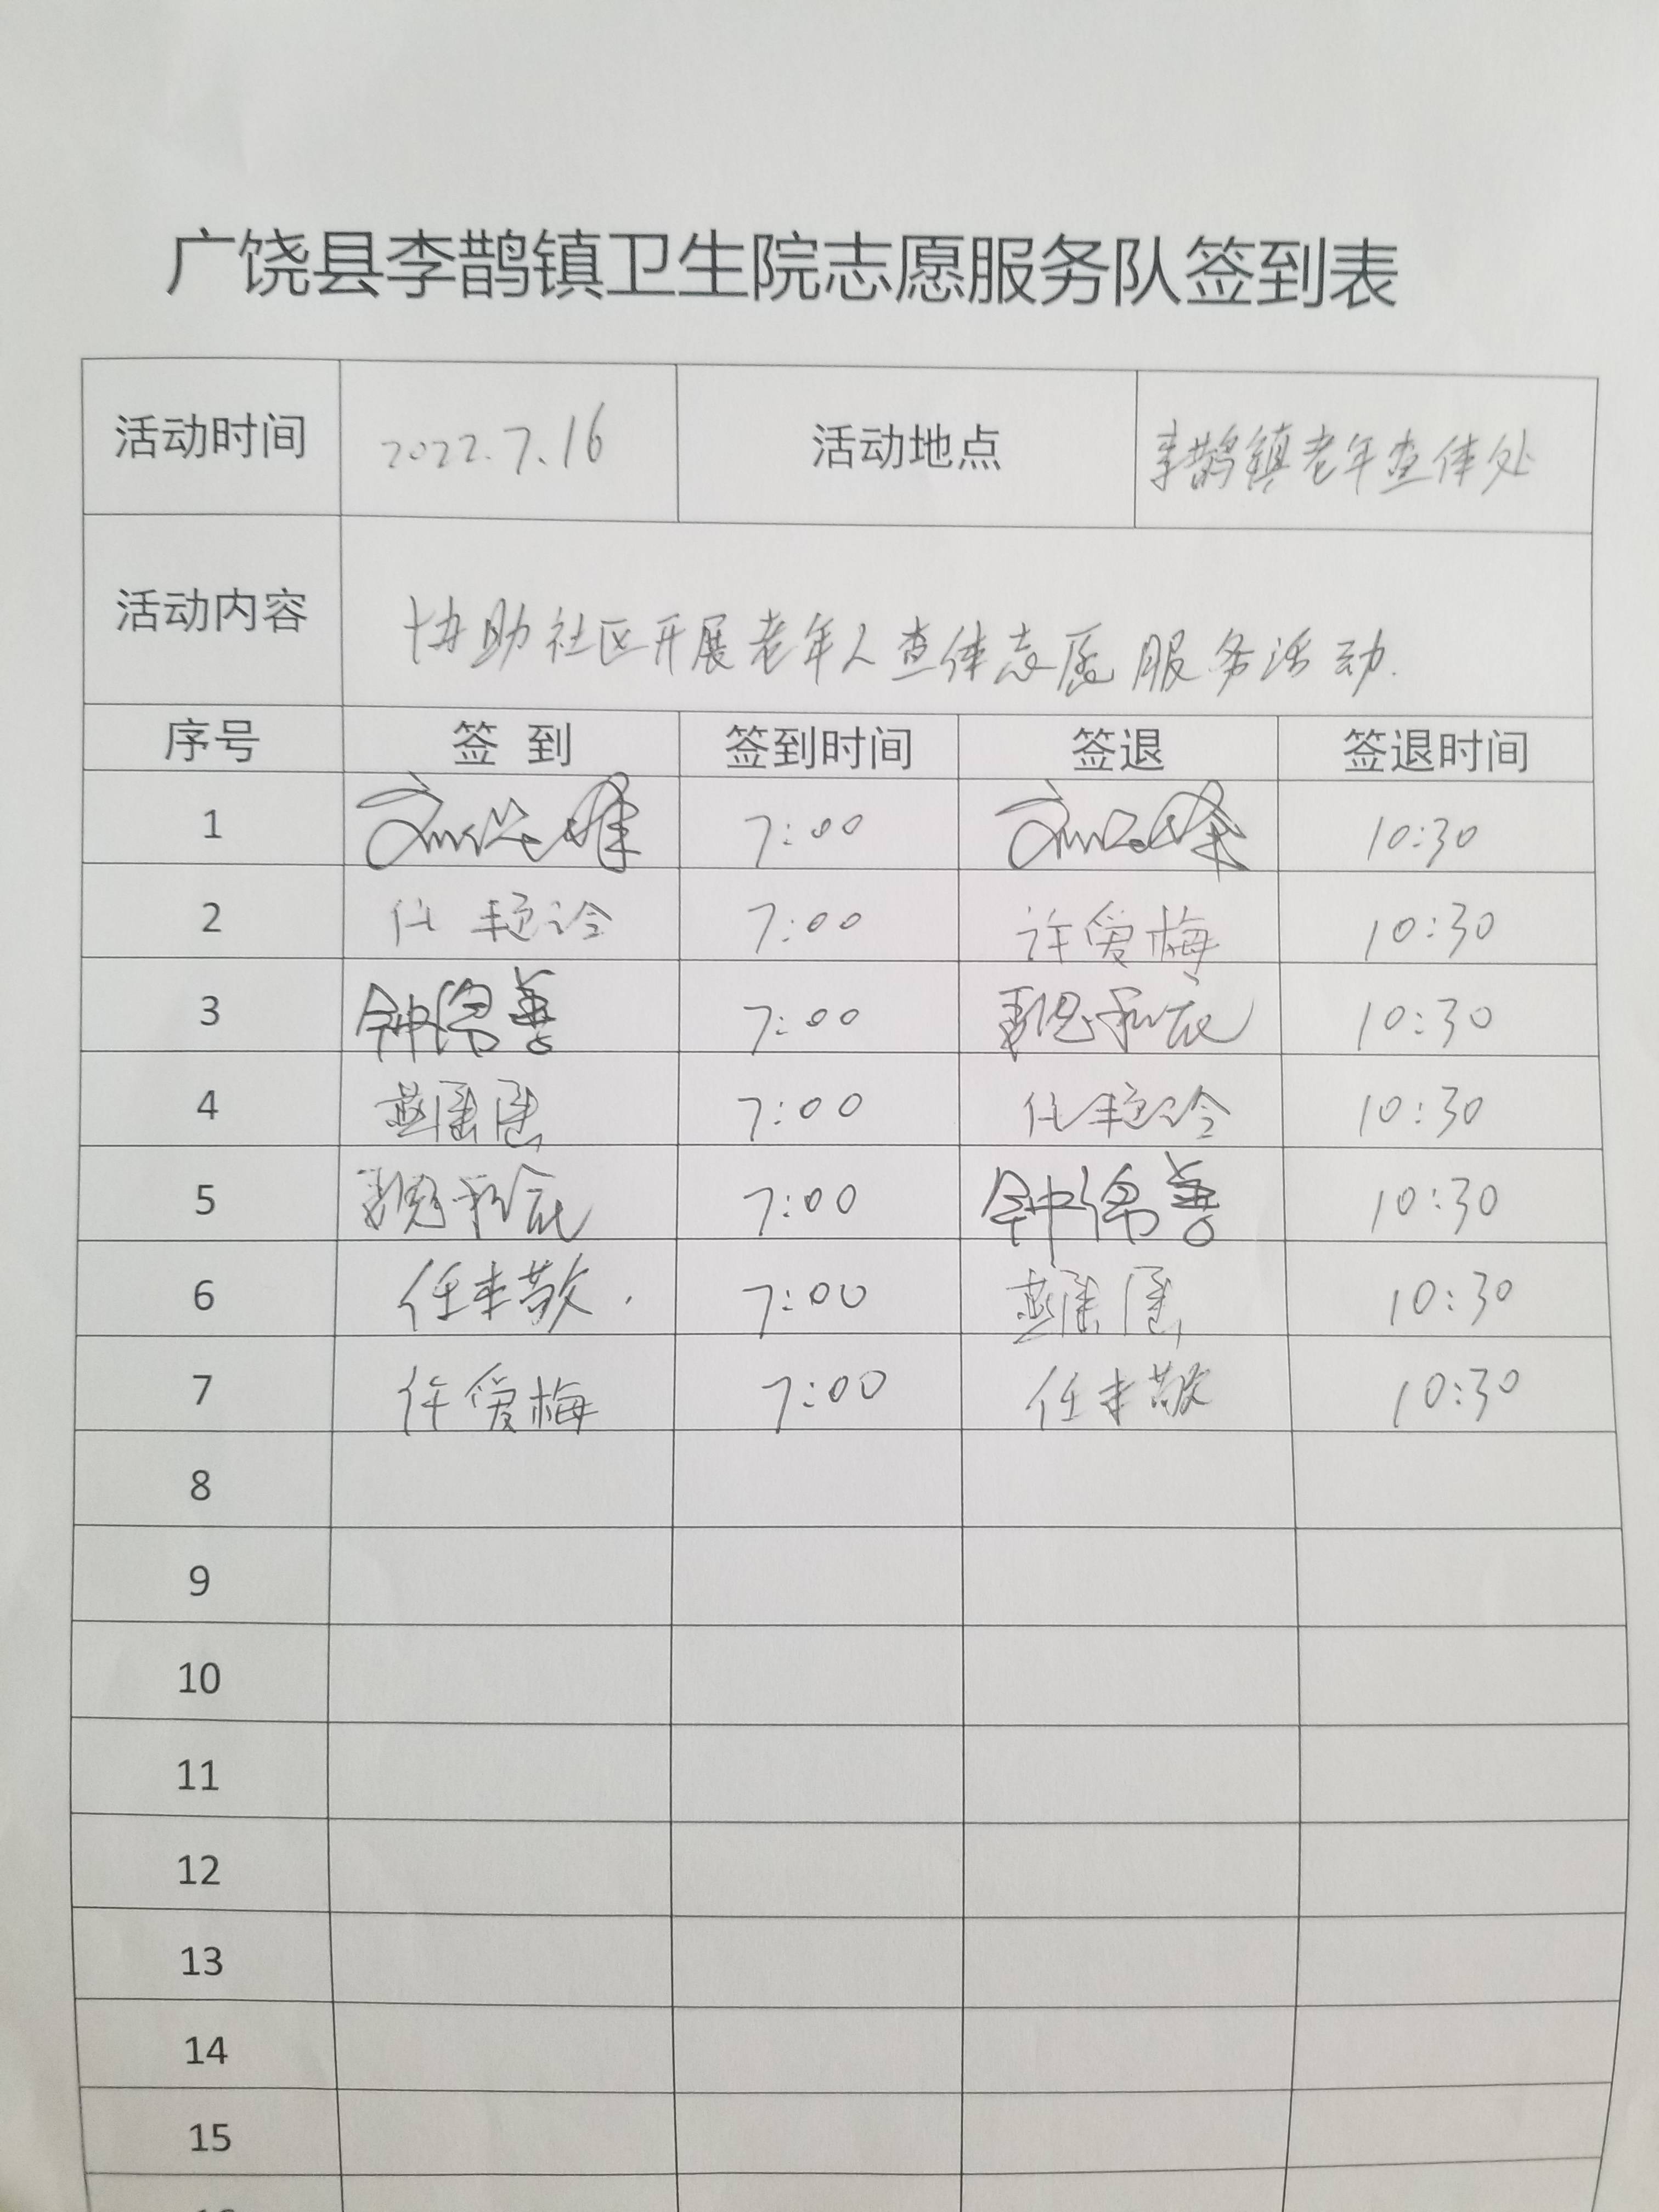 广饶县李鹊镇卫生院志愿服务队签到表
活动时间 2022.7.16 活动地点 李鹊镇老年查体处
活动内容 协助社区开展老年人查体志愿服务活动.
序号 签 到 签到时间 签退 签退时间
1 7:00 10:30
2 任艳玲 7:00 许爱梅 10:30
3 钟锦善 7:00 10:30
4 7:00 任艳玲 10:30
5 7:00 钟锦善 10:30
6 任来敬 7:00 10:30
7 许爱梅 7:00 任来敬 10:30
8
9
10
11
12
13
14
15